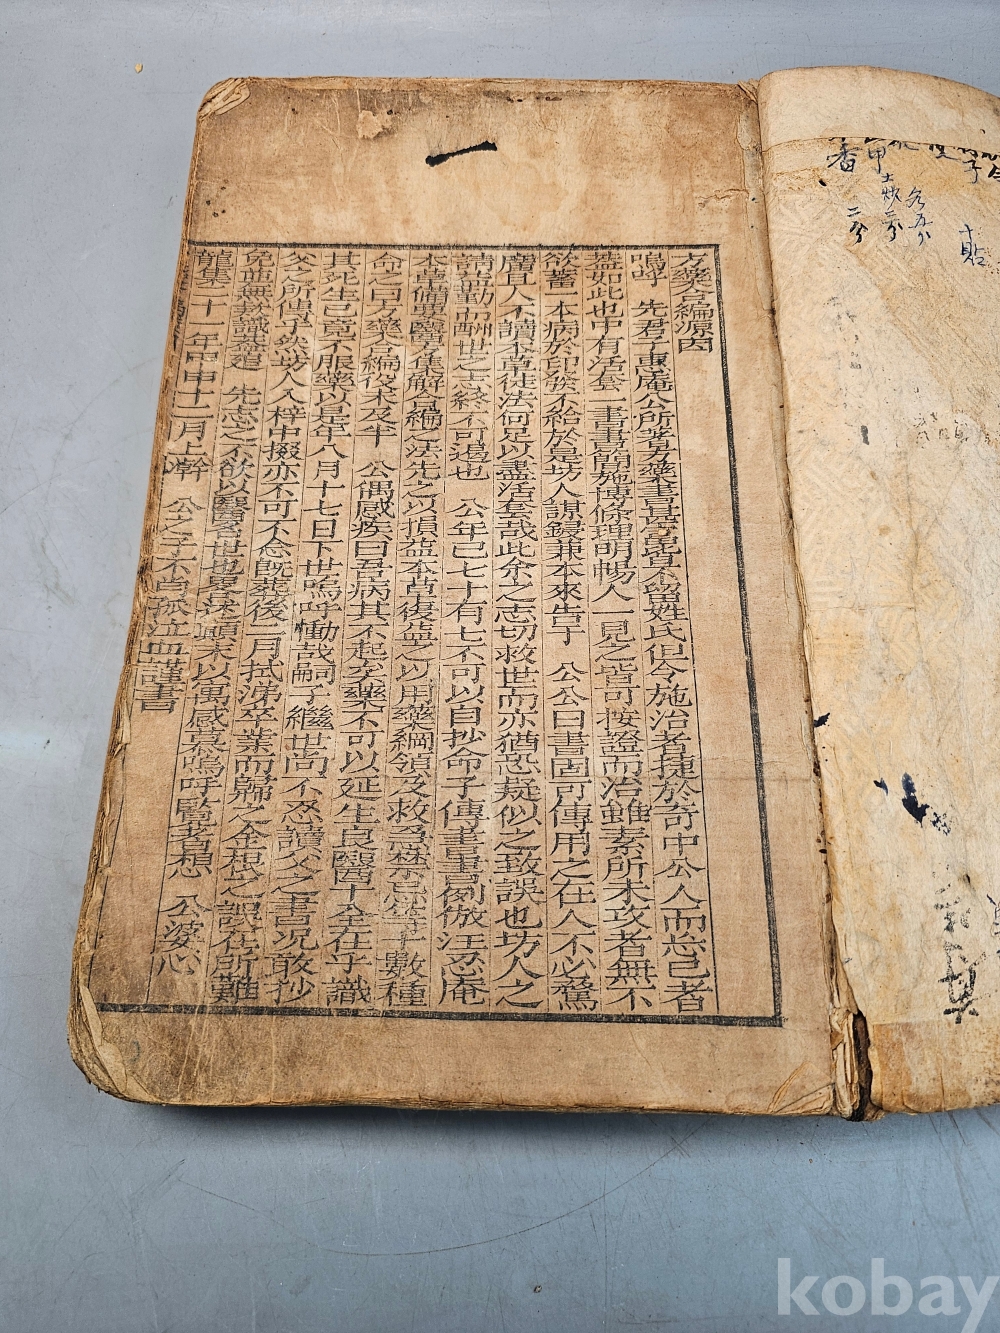 方藥合編源因
嗚呼 先君子惠庵公所著方藥書甚富皆不留姓氏但令施治者捷於奇中公人而忘己者
蓋如此也中有活套一書書簡施博條理明暢人一見之皆可按證而治雖素所未攻者無不
欲蓄一本病於印發不給於是坊人謀鋟兼本來告于 公公曰書固可傳用之在人不必驚
廣且人不讀本草徒法何足以盡活套哉此余之志切救世而亦猶恐疑似之致誤也坊人之
請益勤而酬世之志終不可遏也 公年已七十有七不可以自抄命子傳書書例倣汪忍庵
本草備要醫方集解合編之法先之以損益本草復益之以用藥綱領及救急禁忌等十數種
命之曰方藥合編役未及半 公偶感疾曰吾病其不起矣藥不可以延生良醫十全在乎識
其死生已竟不服藥以是年八月十七日下世嗚呼慟哉嗣子繼世尚不忍讀父之書況敢抄
父之所傳乎然坊人入梓中掇亦不可不念旣葬後一月拭涕卒業而歸之金根之誤在所難
免茲無敢識其過 先志之不欲以醫名世也略綴顚末以寓感慕嗚呼覽者想 公婆心
龍集二十一年甲申十二月上澣 公之子不肖孤泣血謹書
一
番
甲
二分
土炒二分
各五分
子
十貼
kobay